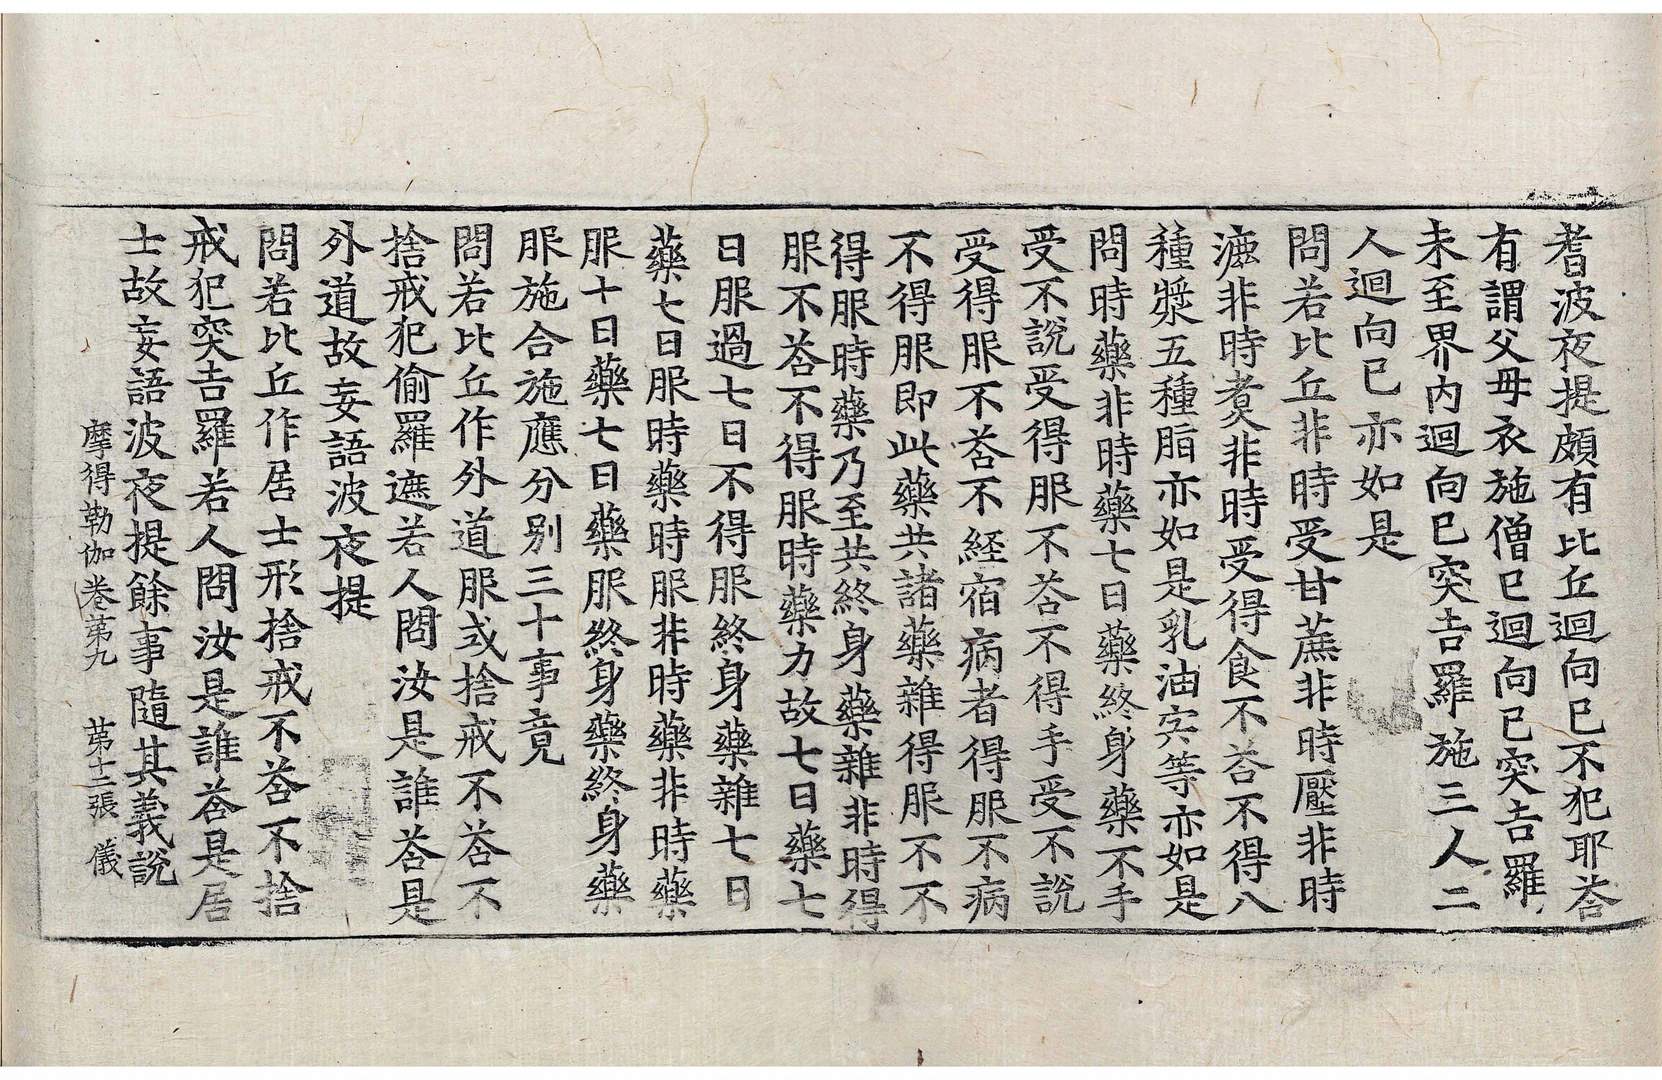 耆波夜提頗有比丘迴向巳不犯耶荅
有謂父母衣施僧巳迴向巳突吉羅
未至界內迴向巳突吉羅施三人二
人迴向巳亦如是
問若比丘非時受甘蔗非時壓非時
漉非時煑非時受得食不荅不得八
種漿五種脂亦如是乳油宍等亦如是
問時藥非時藥七日藥終身藥不手
受不說受得服不荅不得手受不說
受得服不荅不經宿病者得服不病
不得服即此藥共諸藥雜得服不不
得服時藥乃至共終身藥雜非時得
服不荅不得服時藥力故七日藥七
日服過七日不得服終身藥雜七日
藥七日服時藥時服非時藥非時藥
服十日藥七日藥服終身藥終身藥
服施合施應分別三十事竟
問若比丘作外道服或捨戒不荅不
捨戒犯偷羅遮若人問汝是誰荅是
外道故妄語波夜提
問若比丘作居士形捨戒不荅不捨
戒犯突吉羅若人問汝是誰荅是居
士故妄語波夜提餘事隨其義說
摩得勒伽卷第九 第十二張 儀